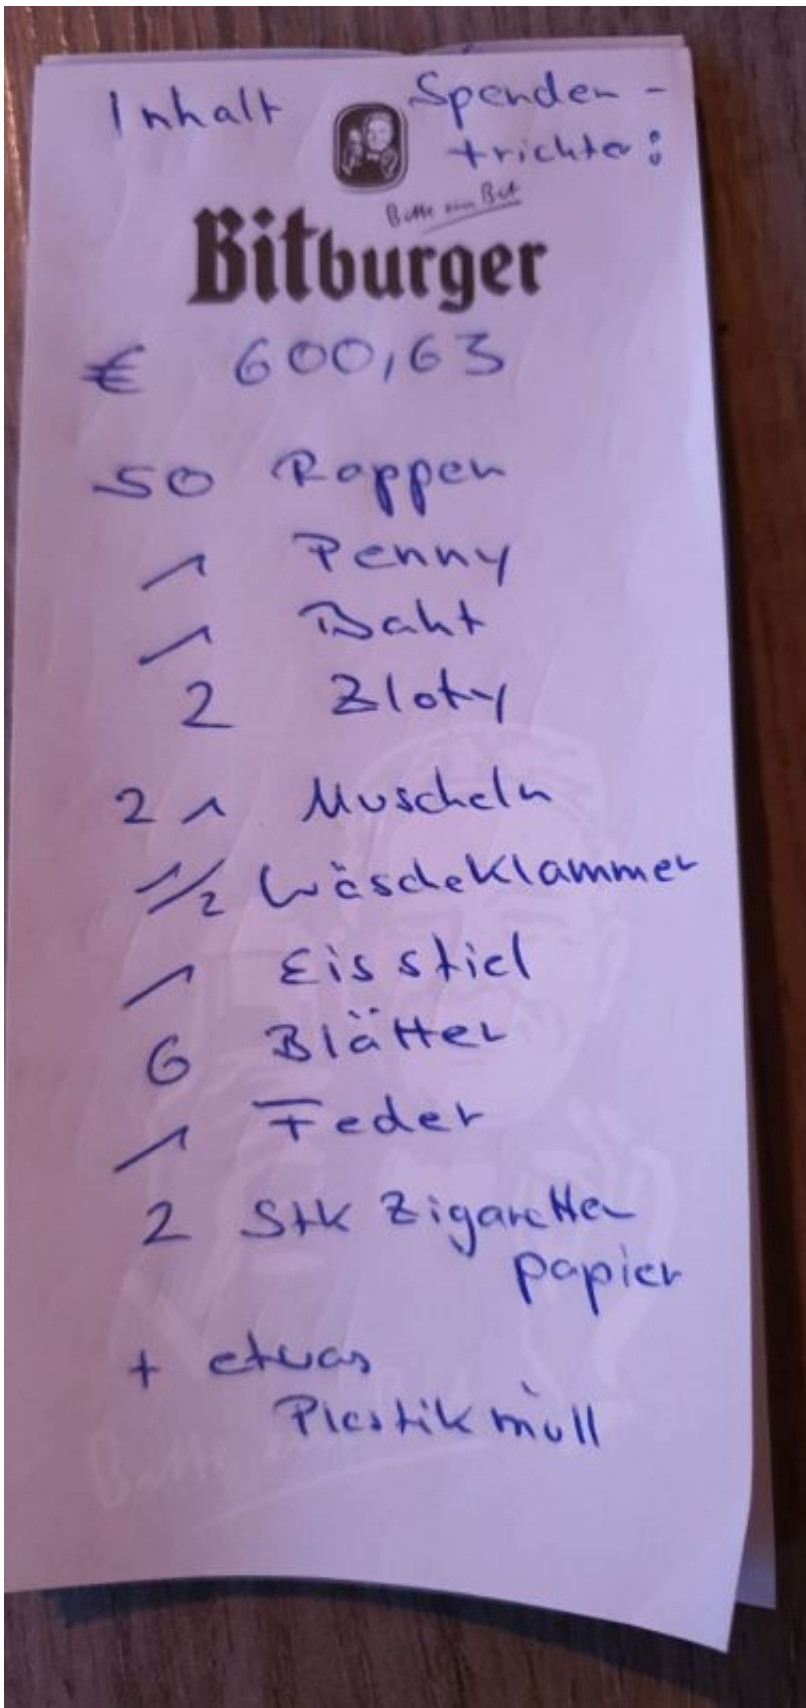 Inhalt Spenden-
trichter:
Bitte ein Bit
Bitburger
€ 600,63
50 Rappen
1 Penny
1 Baht
2 Zloty
21 Muscheln
1/2 Wäscheklammer
1 Eisstiel
6 Blätter
1 Feder
2 Stk Zigaretten
papier
+ etwas
Plastikmüll